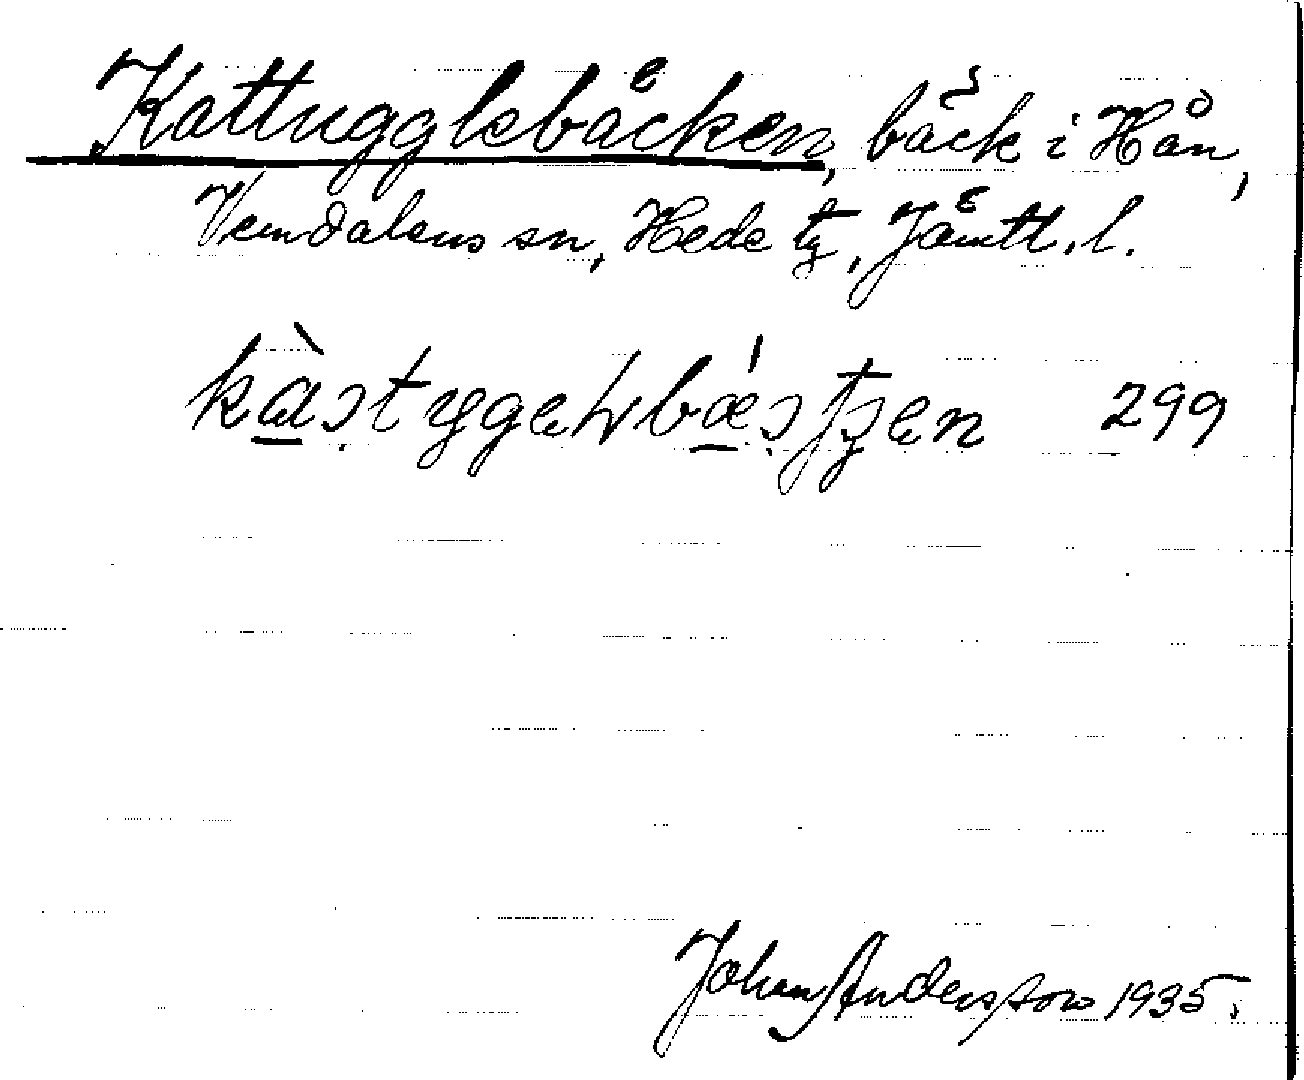 Kattugglebäcken, bäck i Hån,
Vemdalens sn, Hede tg, Jämtl. l.
299
Johan Andersson 1935.